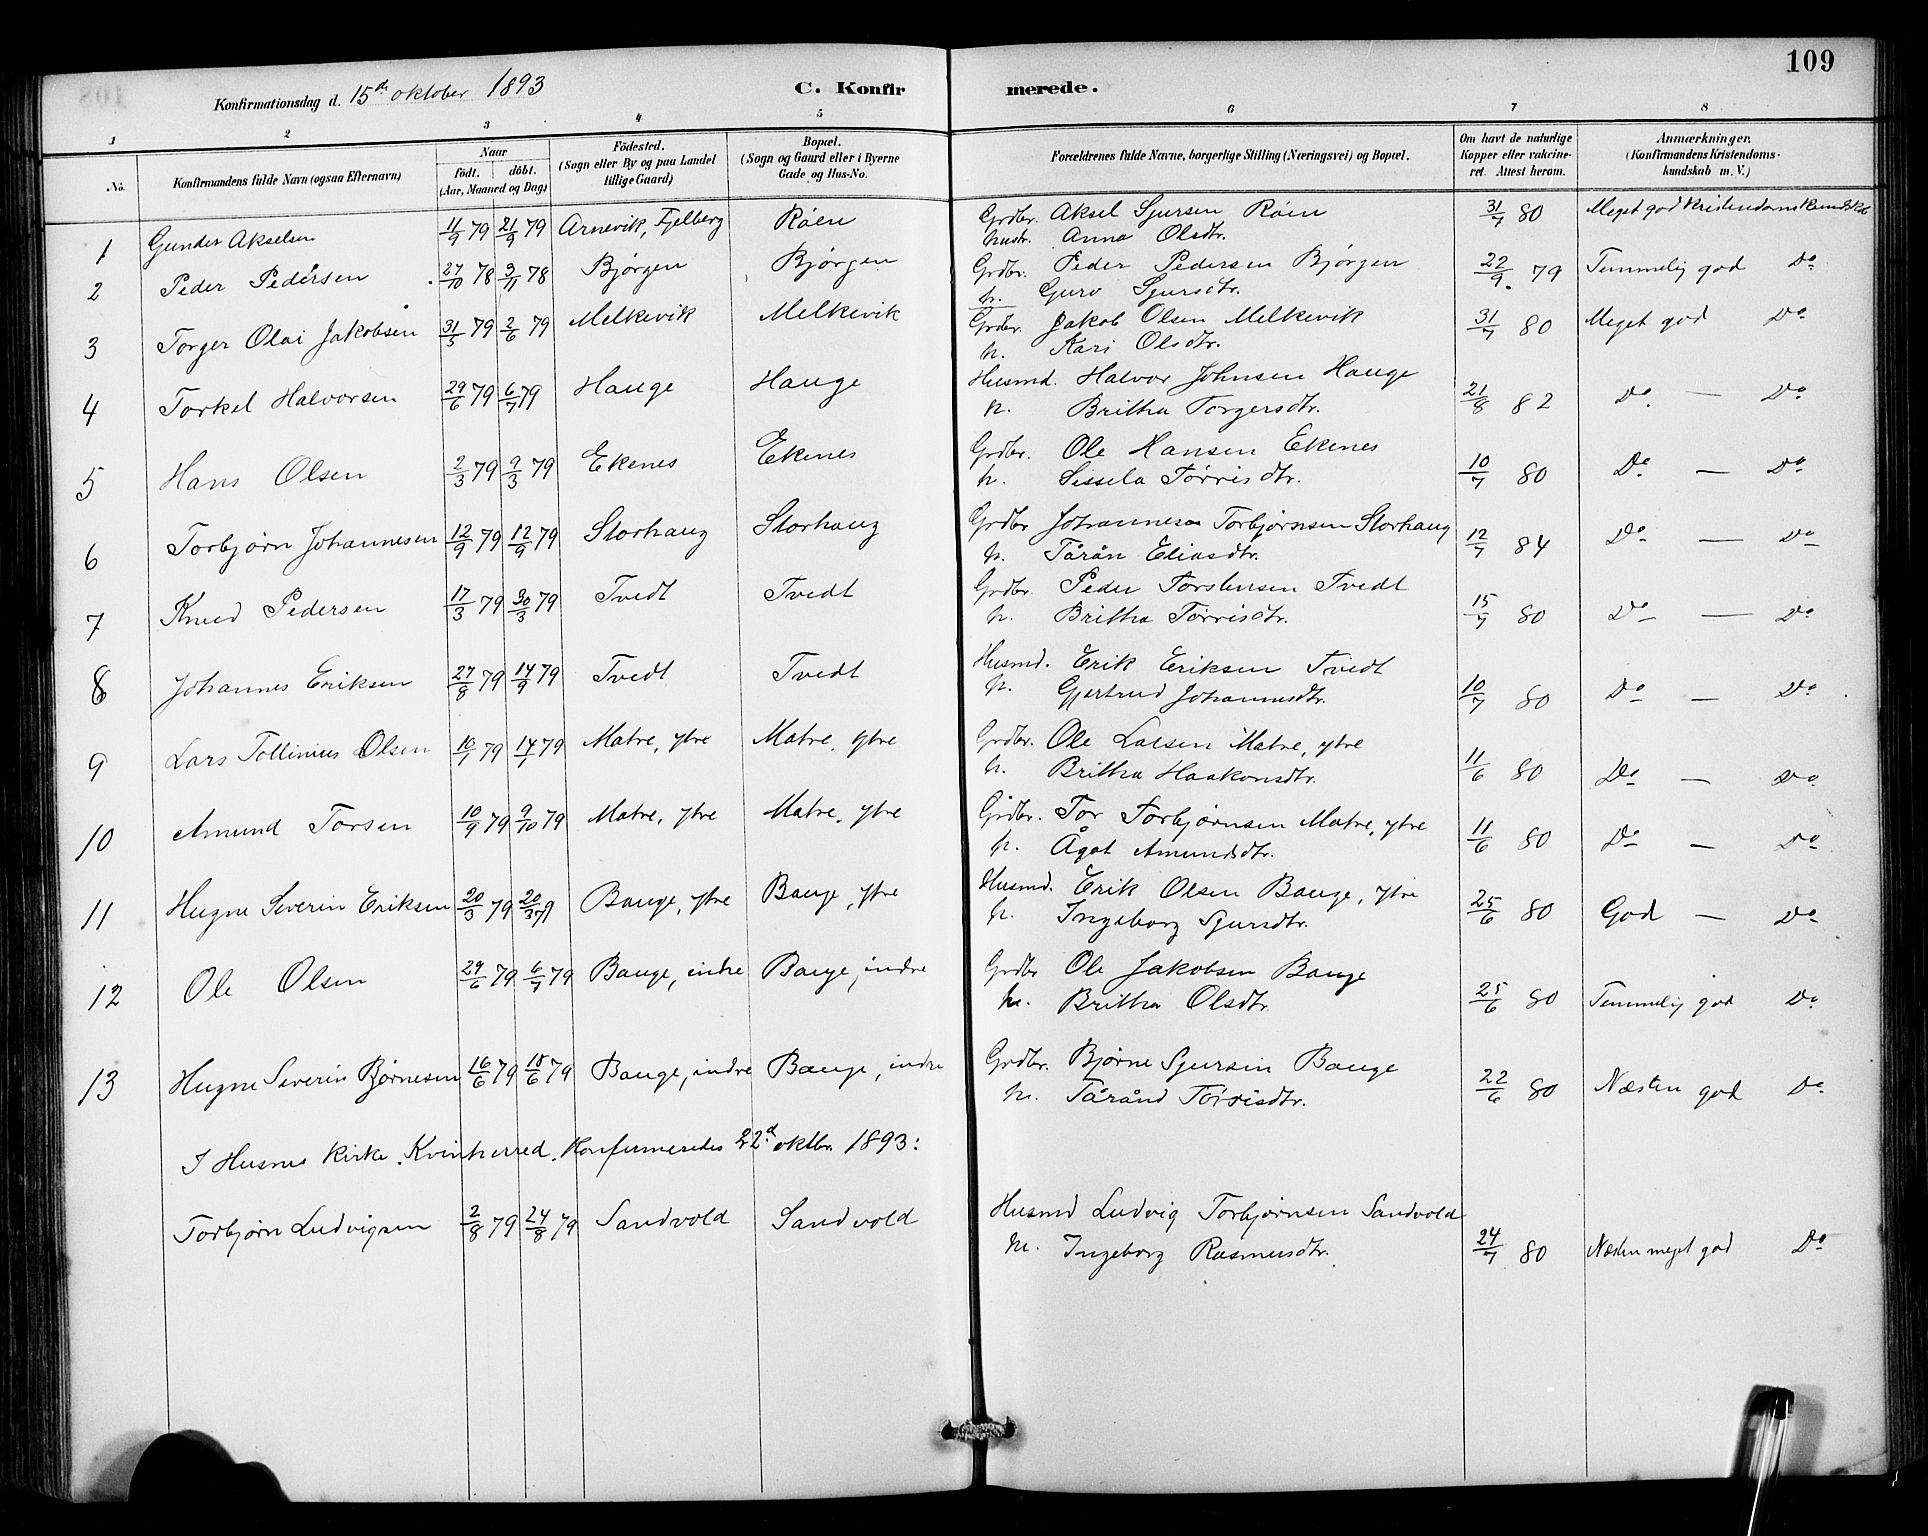 109
Konfirmationsdag d. 15de oktober 1893 C. Konfirmerede.
1 2 3 4 5 6 7 8
No. Konfirmandens fulde Navn (ogsaa Efternavn) Naar født. døbt. (Aar, Maaned og Dag) Födested. (Sogn eller By og paa Landet tillige Gaard) Bopæl. (Sogn og Gaard eller i Byerne Gade og Hus-No. Forældrenes fulde Navne, borgerlige Stilling (Næringsvei) og Bopæl. Om havt de naturlige Kopper eller vakcineret. Attest herom. Anmærkninger. (Konfirmandens Kristendomskundskab m. V.)
1 Gunder Akselsen 11/9 79 21/9 79 Arnevik, Fjelberg Røen Grdbr. Aksel Sjursen Røen 31/7 80 Meget god Kristendomskundskab
hustr. Anna Olsdtr.
2 Peder Pedersen 27/10 78 3/11 78 Bjørgen Bjørgen Grdbr. Peder Pedersen Bjørgen 22/9 79 Temmelig god Do
h. Guro Sjursdtr.
3 Torger Olai Jakobsen 31/5 79 2/6 79 Melkevik Melkevik Grdbr. Jakob Olsen Melkevik 31/7 80 Meget god Do
h. Kari Olsdtr.
4 Torkel Halvorsen 29/6 79 6/7 79 Hauge Hauge Husmd. Halvor Johnsen Hauge 21/8 82 Do — Do
h. Britha Torgersdtr.
5 Hans Olsen 2/3 79 9/3 79 Ekenes Ekenes Grdbr. Ole Hansen Ekenes 10/7 80 Do — Do
h. Sissela Tørrisdtr.
6 Torbjørn Johannesen 12/9 79 12/9 79 Storhaug Storhaug Grdbr Johannes Torbjørnsen Storhaug 12/7 84 Do — Do
h. Tårån Eliasdtr.
7 Knud Pedersen 17/3 79 30/3 79 Tvedt Tvedt Grdbr. Peder Torstensen Tvedt 15/7 80 Do — Do
h. Britha Tørrisdtr.
8 Johannes Eriksen 27/8 79 14/9 79 Tvedt Tvedt Husmd. Erik Eriksen Tvedt 10/7 80 Do — Do
h. Gjertrud Johannesdtr.
9 Lars Tollinius Olsen 79 79 Matre, ytre Matre, ytre Grdbr. Ole Larsen Matre, ytre 11/6 80 Do — Do
h. Britha Haakonsdtr.
10 Amund Torsen 10/9 79 9/10 79 Matre, ytre Matre, ytre Grdbr. Tor Torbjørnsen Matre, ytre 11/6 80 Do — Do
h. Ågot Amundsdtr.
11 Hugne Severin Eriksen 20/3 79 20/3 79 Bauge, ytre Bauge, ytre Husmd. Erik Olsen Bauge, ytre 25/6 80 God — Do
h. Ingeborg Sjursdtr.
12 Ole Olsen 29/6 79 6/7 79 Bauge, indre Bauge, indre Grdbr Ole Jakobsen Bauge 25/6 80 Temmelig god Do
h. Britha Olsdtr
13 Hugne Severin Bjørnesen 16/6 79 18/6 79 Bauge, indre Bauge, indre Grdbr. Bjørne Sjursen Bauge 22/6 80 Næsten god Do
h. Tårånd Tørrisdtr.
I Husnes Kirke, Kvinherred, Konfirmeredes 22d oktbr. 1893:
Torbjørn Ludvigsen 2/8 79 24/8 79 Sandvold Sandvold Husmd Ludvig Torbjørnsen Sandvold 24/7 80 Næsten meget god Do
h. Ingeborg Rasmusdtr.